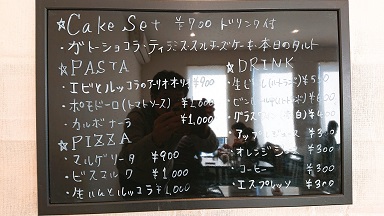 ☆Cake Set ¥700 ドリンク付
・ガトーショコラ・ティラミス・スフレチーズケーキ・本日のタルト
☆PASTA
・エビとルッコラのアーリオオーリオ ¥900
・ポモドーロ(トマトソース) ¥1,000
・カルボナーラ ¥1,000
☆PIZZA
・マルゲリータ ¥900
・ビスマルク ¥1,000
・生ハムとルッコラ ¥1,000
☆DRINK
・生ビール
・グラス
・アップルジュース ¥300
・オレンジジュース ¥300
・コーヒー ¥300
・エスプレッソ ¥300